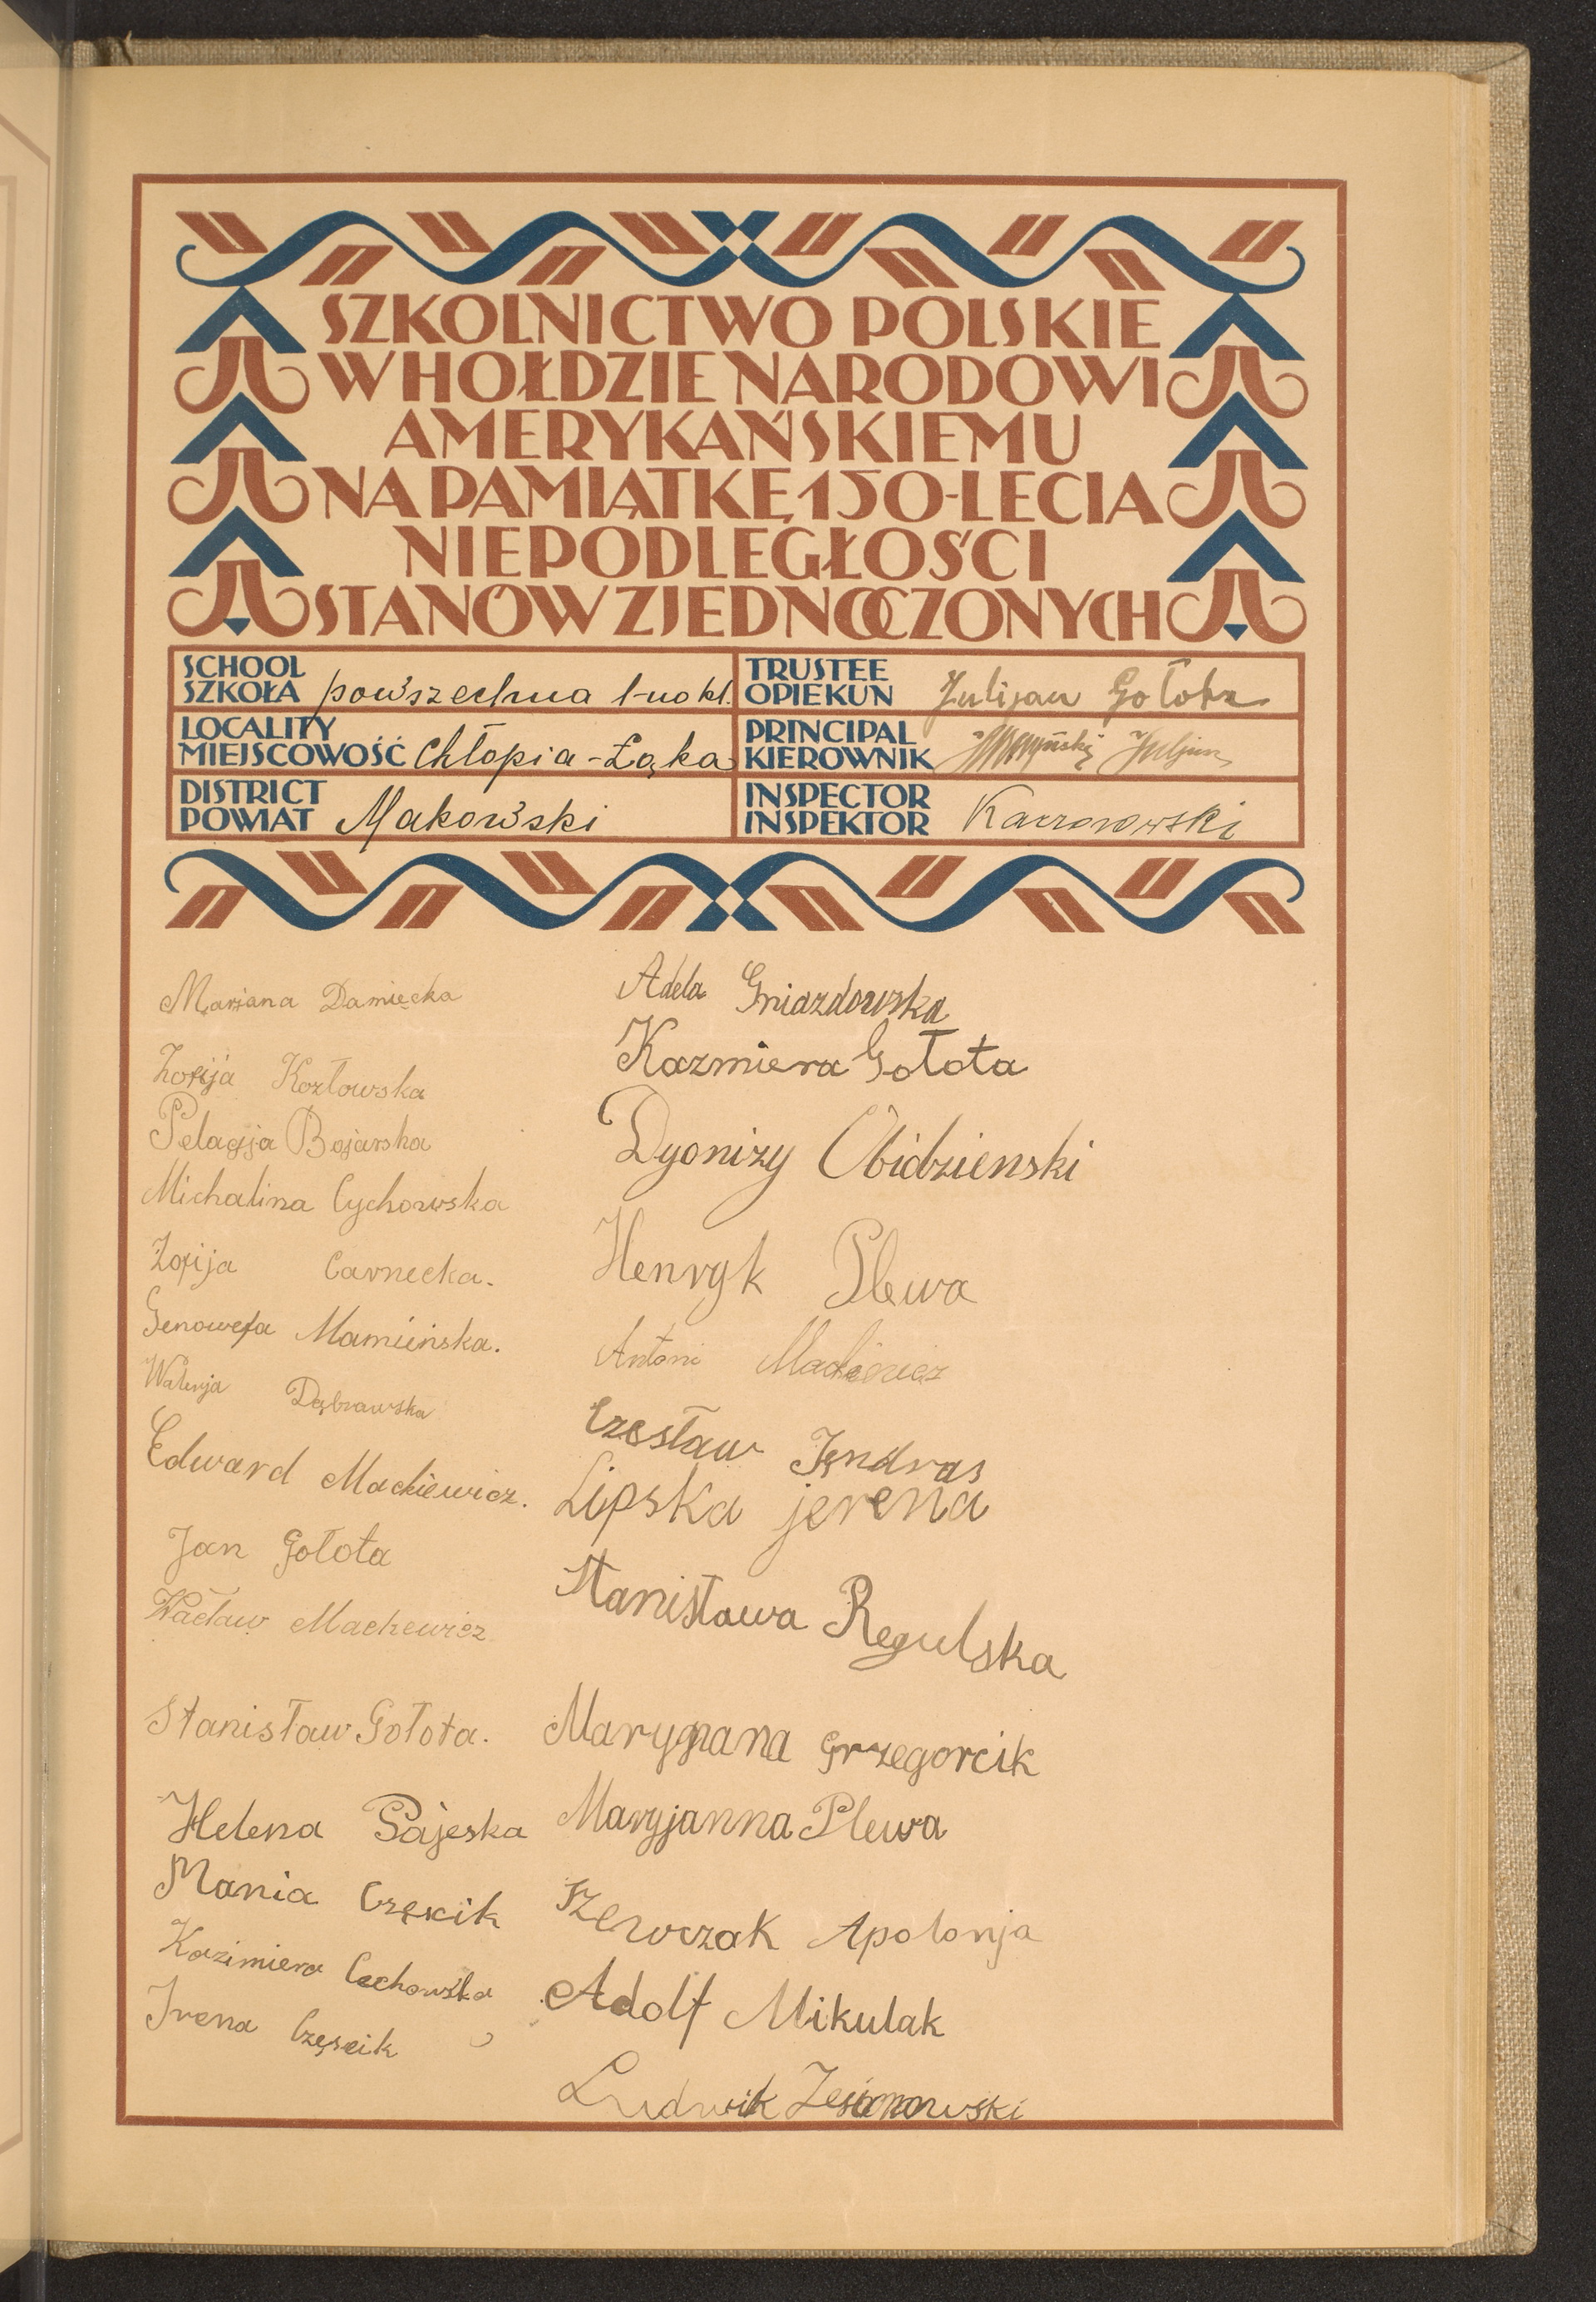 SZKOLNICTWO POLSKIE
W HOŁDZIE NARODOWI
AMERYKAŃSKIEMU
NA PAMIĄTKĘ 150-LECIA
NIEPODLEGŁOŚCI
STANÓW ZJEDNOCZONYCH
SCHOOL
SZKOŁA powszechna 1-no kl.
TRUSTEE
OPIEKUN Julijan Gołota
LOCALITY
MIEJSCOWOŚĆ Chłopia-Łąka
PRINCIPAL
KIEROWNIK Juljan
DISTRICT
POWIAT Makowski
INSPECTOR
INSPEKTOR
Marjana Damięcka
Zofija Kozłowska
Pelagja Bojarska
Michalina Cychowska
Zofija Carnecka.
Genowefa Mamińska.
Walerja Dąbrawska
Edward Mackiewicz.
Jan Gołota
Wacław Mackewicz
Stanisław Gołota.
Helena Sajeska
Mania Częscik
Kazimiera Cechowska
Irena Częscik
Adela Gniazdowska
Kazmiera Gołota
Dyonizy Obidzienski
Henryk Plewa
Antoni Mackiewicz
Czesław Jęndras
Lipska jerena
Stanisława Regulska
Maryjana Grzegorcik
Maryjanna Plewa
Szewczak Apolonja
Adolf Mikulak
Ludwik